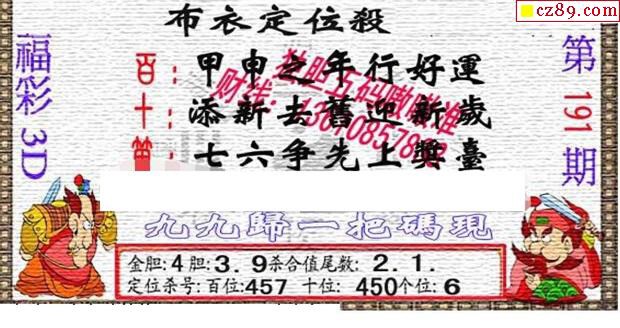 cz89.com
布衣定位殺
福彩3D
第191期
百:甲申之年行好運
十:添新去舊迎新歲
:七六争先上獎臺
九九歸一把碼現
金胆:4胆:3.9杀合值尾数:2.1.
定位杀号:百位:457 十位: 450个位:6